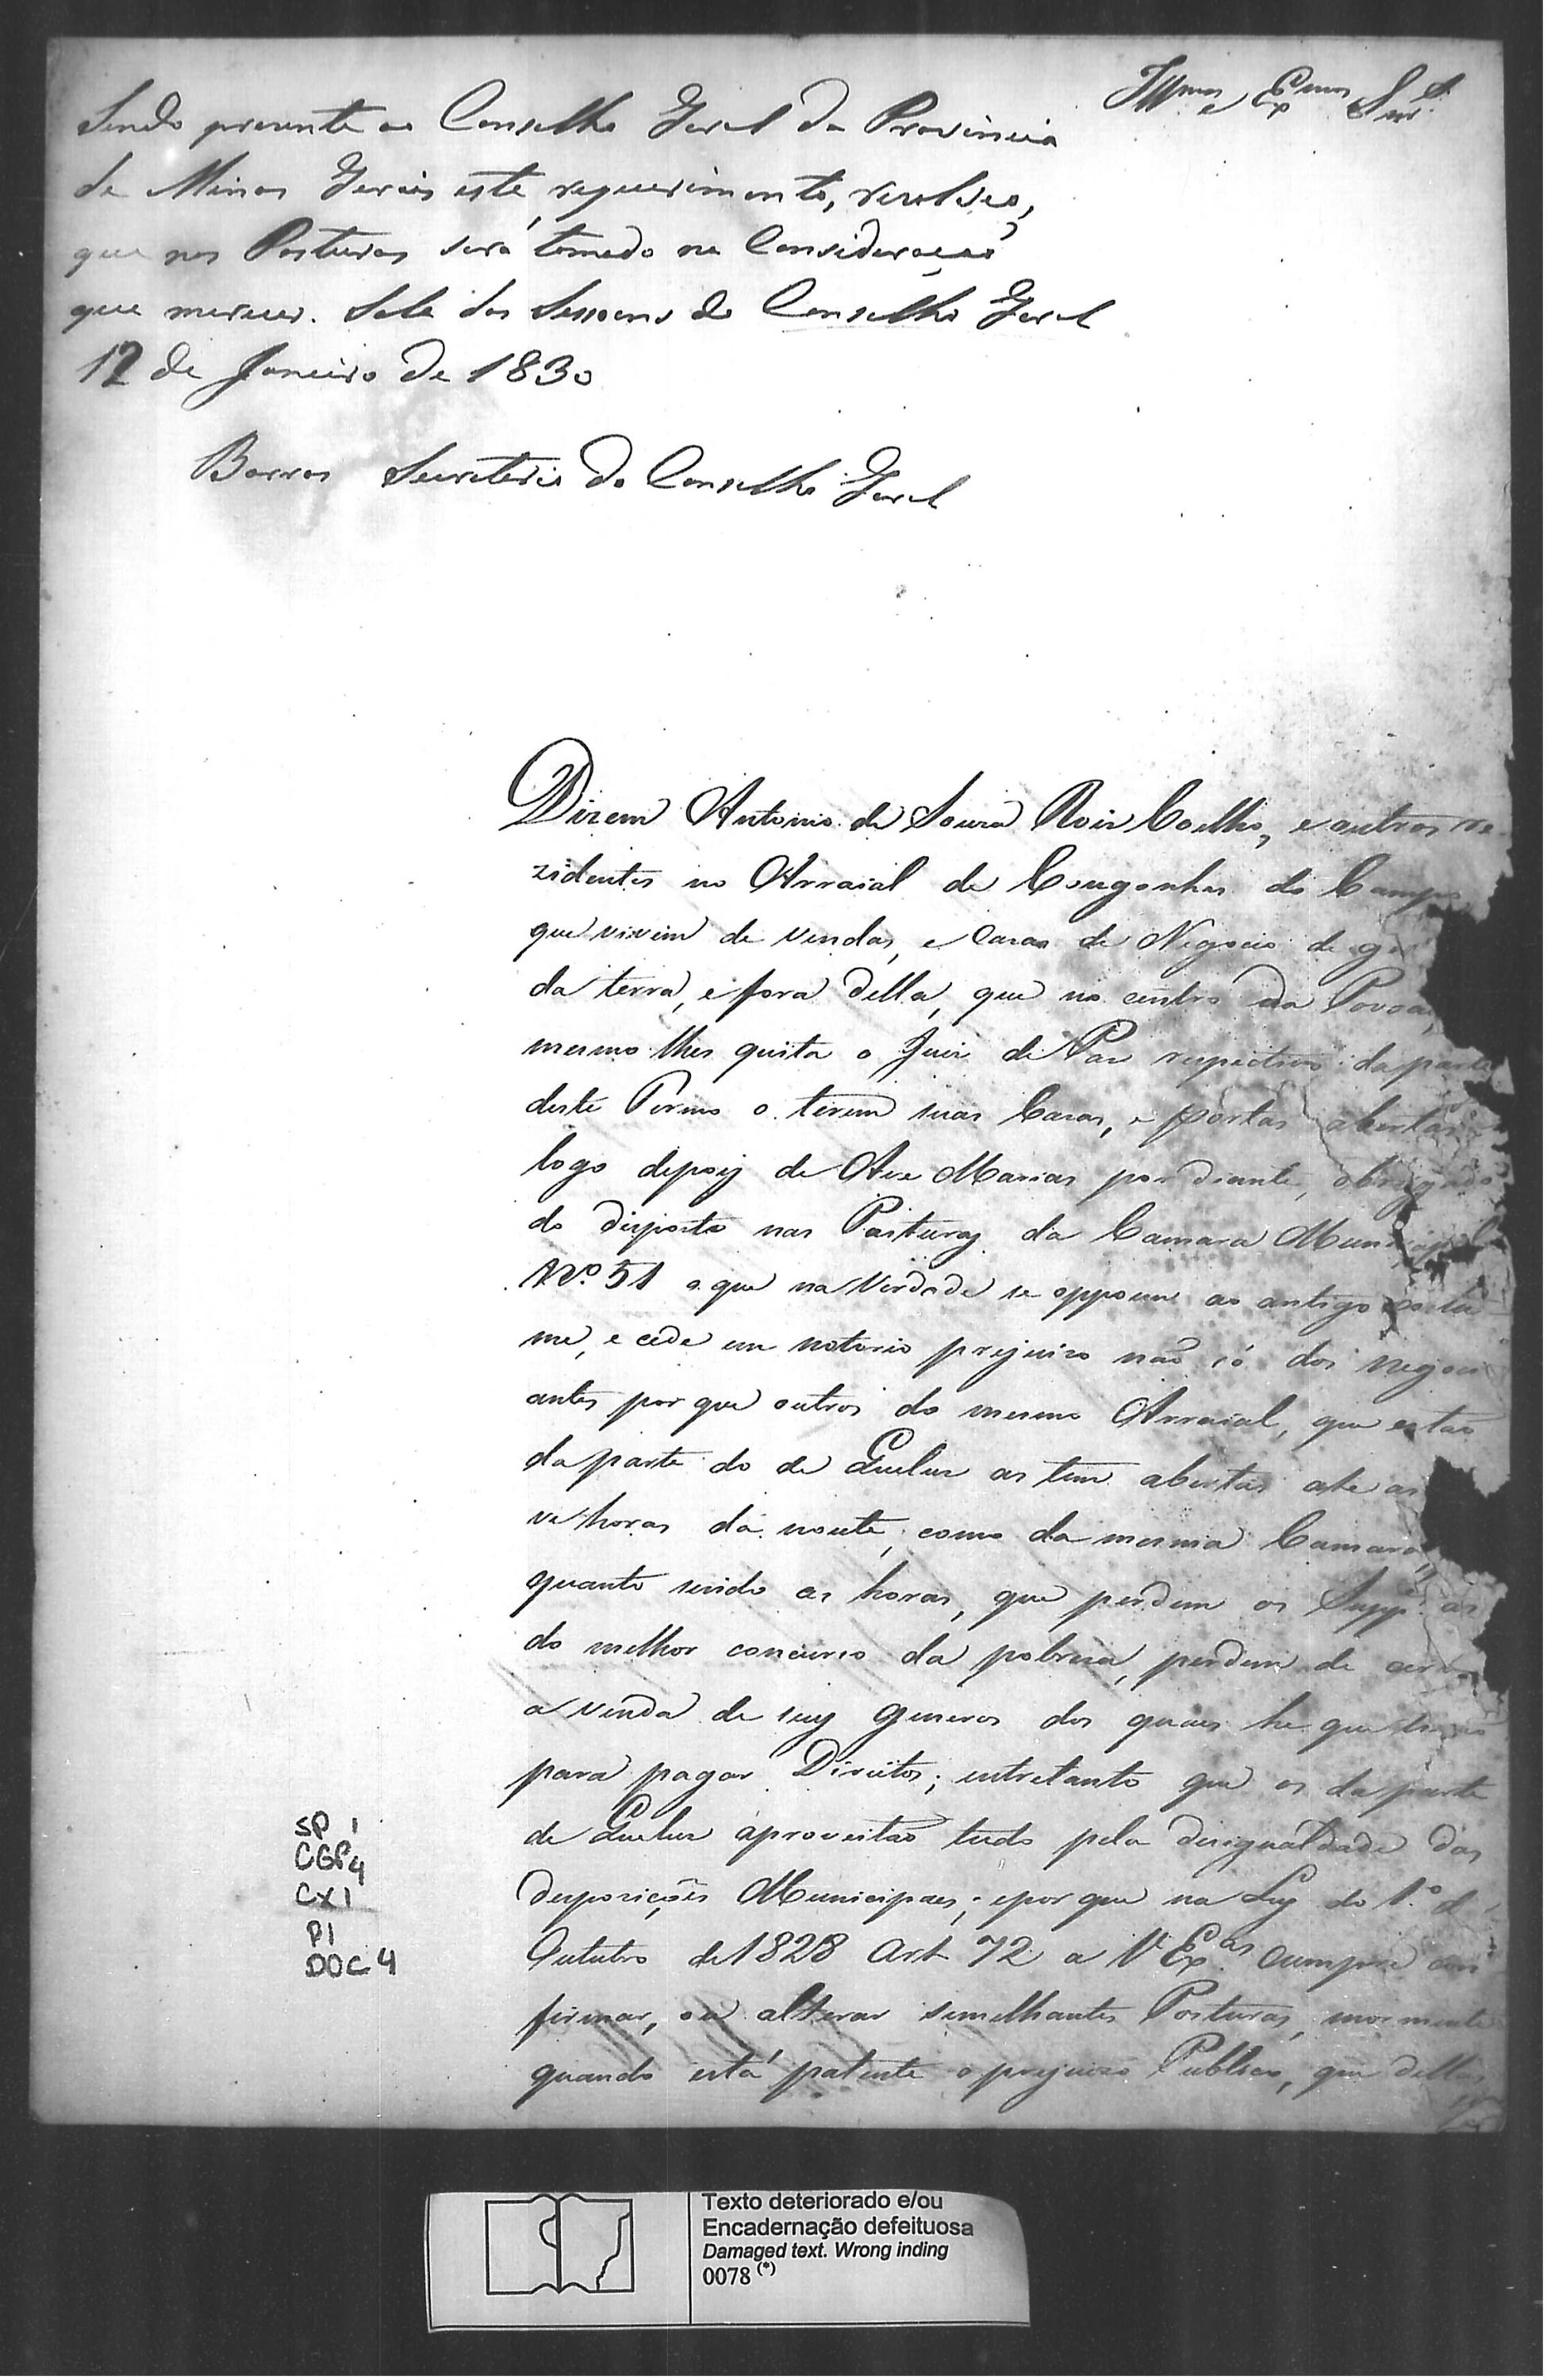 Illmos e Exmos Snrs
Sendo presente ao Conselho Geral da Provincia
de Minas Geraes este requerimento, resolveo,
que nas Posturas será tomado na Consideração
que merecer. Sala das Sessoens do Conselho Geral
12 de Janeiro de 1830
Barros Secretario do Conselho Geral
Dizem Antonio de Souza Roiz Coelho, e outros re-
zidentes no Arraial de Congonhas do Campo
que vivem de vendas, e Cazas de Negocio de
da terra, e fora della, que no centro da Povoa
mesmo lhes quita o Juiz de Paz respectivo da parte
deste Termo o terem suas Cazas, e portas abertas
logo depois de Ave Marias por diante, obrigado
do disposto nas Posturas da Camara Municipal
N.º 51 o que na verdade se oppoem ao antigo costu
me, e cede em notorio prejuizo não só dos negoci
antes por que outros do mesmo Arraial, que estao
da parte do de Queluz as tem abertas ate as
ve horas da noute, como da mesma Camara,
quanto sendo as horas, que perdem os Supp.es as
do melhor concurso da pobreza, perdem de
a venda de seus generos dos quaes he que
para pagar Direitos; entretanto que os da parte
de Queluz aproveitão tudo pela desigualdade das
desposições Municipaes; e por que na Ley do 1.º d
Outubro de 1828 Art 72 a V Ex.as cumpre con
firmar, ou alterar semelhantes Posturas, mormente
quando está patente o prejuizo Publico, que dellas
SP 1
CGP4
CX1
P1
DOC 4
Texto deteriorado e/ou
Encadernação defeituosa
Damaged text. Wrong inding
0078 (*)